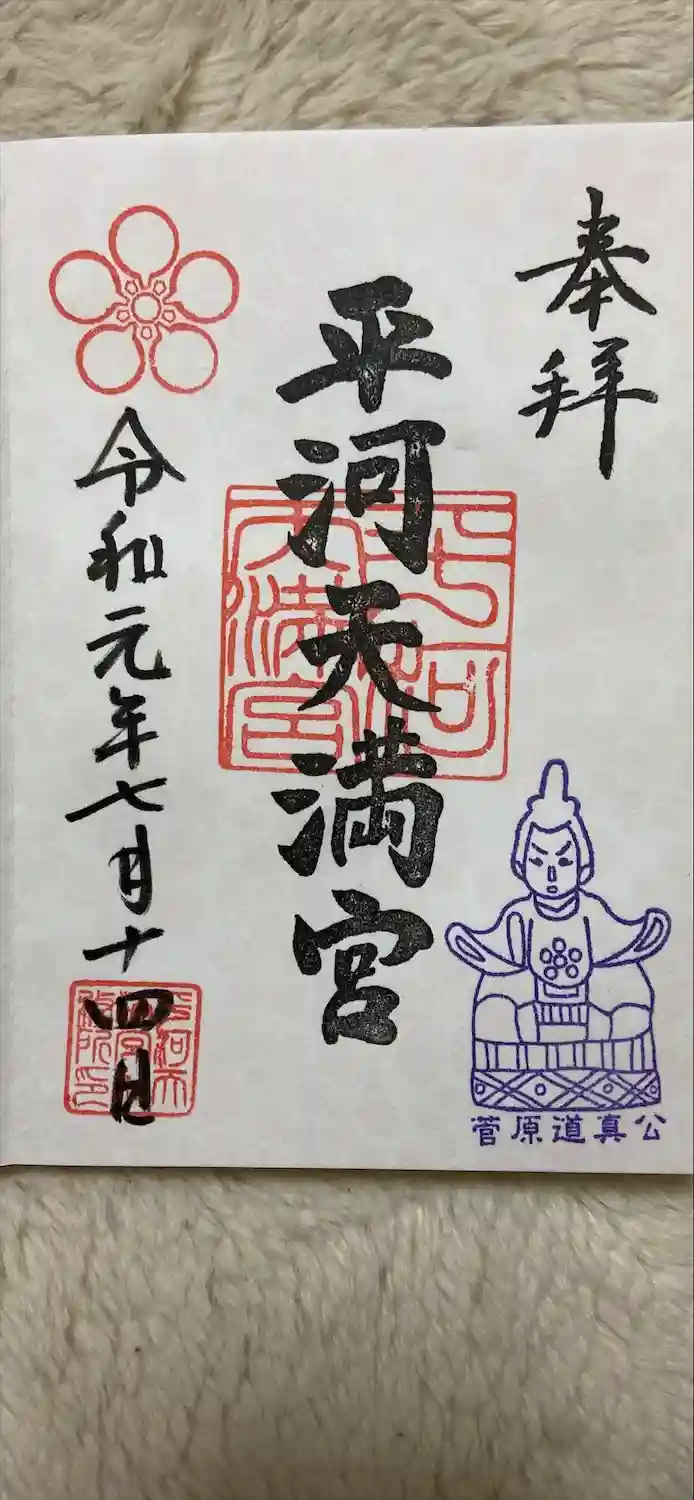 奉拝
平河天満宮
平河天満宮
菅原道真公
令和元年七月十四日